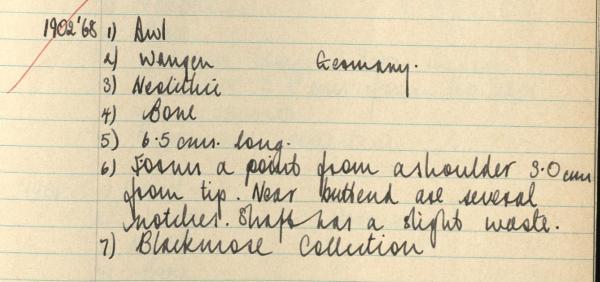 1902'68 1) Awl
2) Wangen Germany.
3) Neolithic
4) Bone
5) 6.5 cms. long.
6) Forms a point from a shoulder 3.0 cms
from tip. Near buttend are several
notches. Shaft has a slight waste.
7) Blackmore Collection